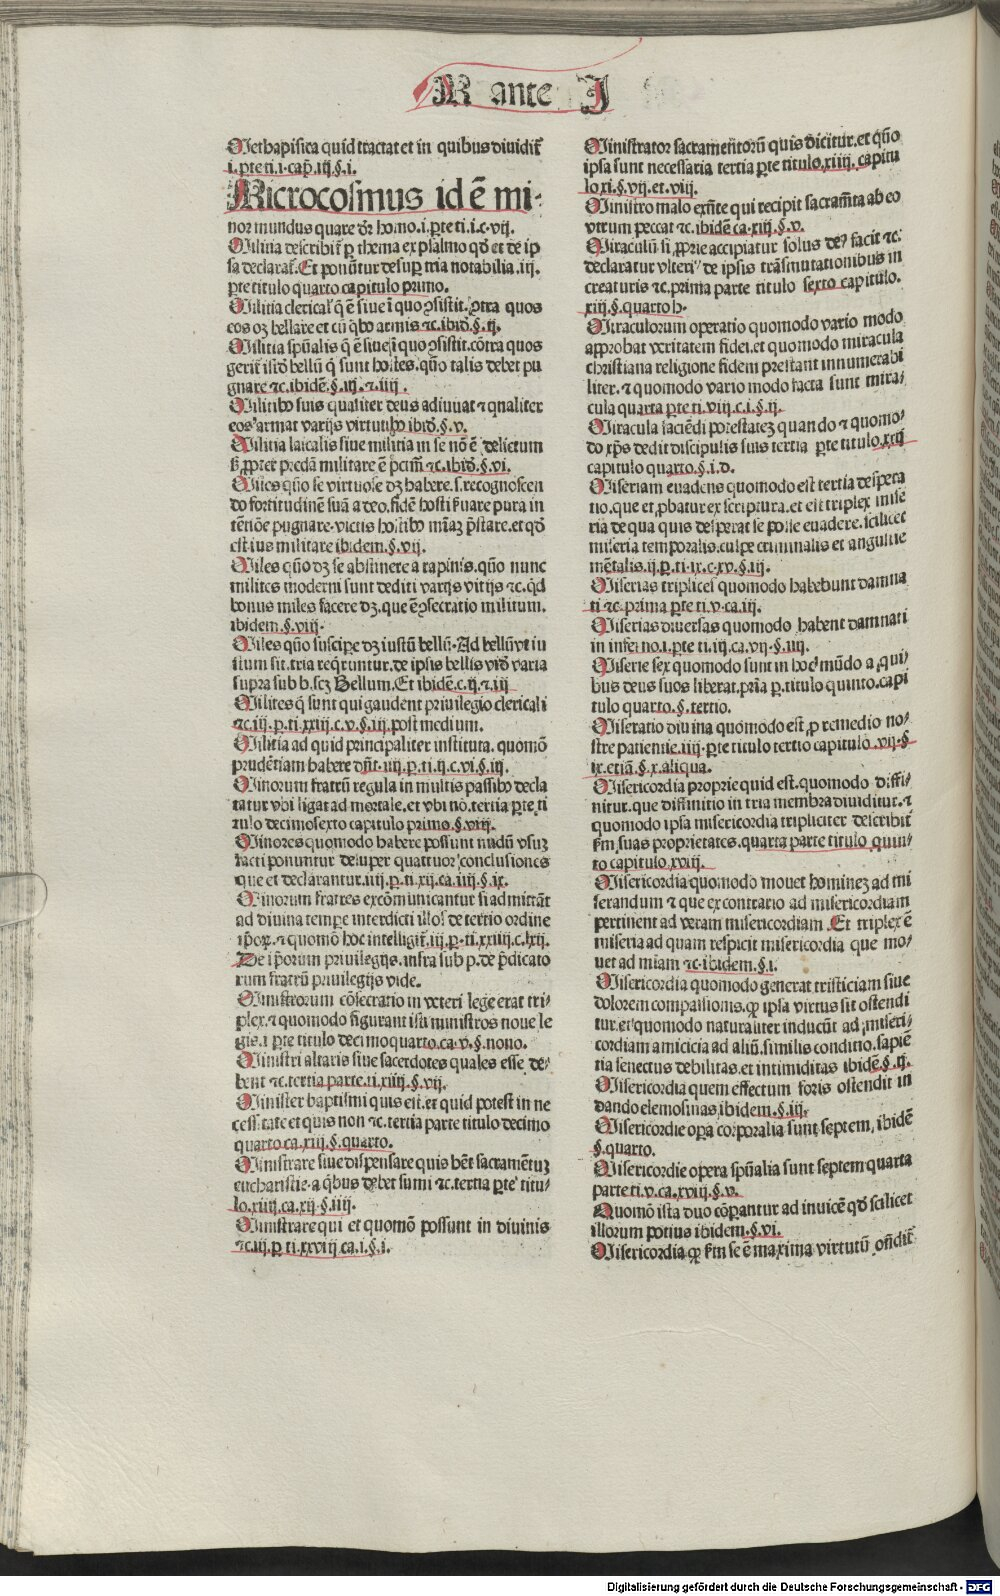 M ante J
Methapisica quid tractat et in quibus diuidit̃
i. ꝑte ti. i. cap̃. iij. §. i.
Microcosmus id ẽ mi-
nor mundus quare dr̃ homo. i. ꝑte ti. i. c. vij.
Militia describit̃ ꝑ thema ex psalmo qd̃ et de ip
sa declarat̃. Et ponũtur desuꝑ tria notabilia. iij.
ꝑte titulo quarto capitulo primo.
Militia clerical̃ q̃ ẽ siue ĩ quo ꝯsistit. ꝯtra quos
eos oꝫ bellare et cũ qͥbꝰ armis ⁊c. ibid̃. §. ij.
Militia spũalis q̃ ẽ siue ĩ quo ꝯsistit. cõtra quos
gerit̃ istd̃ bellũ q̃ sunt hostes. quõ talis debet pu
gnare ⁊c. ibidẽ. §. iij. ⁊. iiij.
Militibꝰ suis qualiter deus adiuuat ⁊ qualiter
eos armat varijs virtutibꝰ ibid̃. §. v.
Militia laicalis siue militia in se nõ ẽ delictum
sꝫ ꝓpter predã militare ẽ pctm̃ ⁊c. ibid̃. §. vi.
Miles quõ se virtuose dꝫ habere. s. recognoscen
do fortitudinẽ suã a deo. fidẽ hosti ẜuare pura in
tẽtiõe pugnare. victis hostibꝰ mĩaꝫ p̃stare. et qd̃
est ius militare ibidem. §. vij.
Miles quõ dꝫ se abstinere a rapinis. quõ nunc
milites moderni sunt dediti varijs vitijs ⁊c. qd̃
bonus miles facere dꝫ. que ẽ ꝯsecratio militum.
ibidem. §. viij.
Miles quõ suscipe dꝫ iustũ bellũ. Ad bellũ vt iu
stum sit. tria reqͥruntur. de ipsis bellis vid̃ varia
supra sub b. scꝫ Bellum. Et ibidẽ. c. ij. ⁊. iij
Milites q̃ sunt qui gaudent priuilegio clericali
⁊c. iij. ꝑ. ti. xxiij. c. v. §. iij. post medium.
Militia ad quid principaliter instituta. quomõ
prudẽtiam habere dñt. iiij. ꝑ. ti. ij. c. vi. §. iij.
Minorum fratrũ regula in multis passibꝰ decla
ratur vbi ligat ad mortale. et vbi nõ. tertia ꝑte ti
tulo decimosexto capitulo primo. §. viij.
Minores quomodo habere possunt nudũ vsuꝫ
facti ponuntur desuper quattuor conclusiones
que et declarantur. iiij. ꝑ. ti. xij. ca. iiij. §. ix.
Minorum fratres excõmunicantur si admittãt
ad diuina tempe interdicti illos de tertio ordine
ip̃oꝝ. ⁊ quomõ hoc intelligit̃. iij. ꝑ. ti. xxiiij. c. lxij.
De ip̃orum priuilegijs. infra sub p. de p̃dicato
rum fratrũ priuilegijs vide.
Ministrorum cõsecratio in veteri lege erat tri-
plex. ⁊ quomodo figurant isti ministros noue le
gis. i ꝑte titulo decimoquarto. ca. v. §. nono.
Ministri altaris siue sacerdotes quales esse de-
bent ⁊c. tertia parte. ti. xiiij. §. vij.
Minister baptismi quis est. et quid potest in ne
cessitate et quis non ⁊c. tertia parte titulo decimo
quarto. ca. xiij. §. quarto.
Ministrare siue dispensare quis hẽt sacramẽtuꝫ
eucharistie. a qͥbus debet sumi ⁊c. tertia ꝑte titu-
lo. xiiij. ca. xij. §. iiij.
Ministrare qui et quomõ possunt in diuinis
⁊c. iij. ꝑ ti. xxviij ca. i. §. i.
Ministrator sacramentorũ quis dicitur. et quõ
ipsa sunt necessaria tertia ꝑte titulo. xiiij. capitu
lo xi. §. vij. et. viij.
Ministro malo exñte qui recipit sacramẽta ab eo
vtrum peccat ⁊c. ibidem ca. xiij. §. v.
Miraculũ si ꝓprie accipiatur solus deꝰ facit ⁊c.
declaratur vlteriꝰ de ipsis trãsmutationibus in
creaturis ⁊c. prima parte titulo sexto capitulo.
xiij. §. quarto h.
Miraculorum operatio quomodo vario modo
approbat veritatem fidei. et quomodo miracula
christiana religione fidem prestant innumerabi
liter. ⁊ quomodo vario modo facta sunt mira-
cula quarta ꝑte ti. viij. c. i. §. ij.
Miracula faciẽdi potestateꝫ quando ⁊ quomo-
do xp̃s dedit discipulis suis tertia ꝑte titulo. xxij
capitulo quarto. §. i. d.
Miseriam euadens quomodo est tertia despera
tio. que et ꝓbatur ex scriptura. et est triplex mise
ria de qua quis desperat se posse euadere. scilicet
miseria temporalis. culpe criminalis et angustie
mẽtalis. ij. ꝑ. ti. ix. c. xv. §. iij.
Miserias triplices quomodo habebunt damna
ti ⁊c. prima ꝑte ti. v. ca. iij.
Miserias diuersas quomodo habent damnati
in inferno. i. ꝑte ti. iij. ca. vij. §. iiij.
Miserie sex quomodo sunt in hoc mũdo a qui-
bus deus suos liberat. pria ꝑ. titulo quinto. capi
tulo quarto. §. tertio.
Miseratio diuina quomodo est ꝓ remedio no-
stre patientie. iiij. ꝑte titulo tertio capitulo. vij. §
ix. et iã. §. x. aliqua.
Misericordia proprie quid est. quomodo diffi-
nitur. que diffinitio in tria membra diuiditur. ⁊
quomodo ipsa misericordia tripliciter describit̃
ẜm suas proprietates. quarta parte titulo quin-
to capitulo. xviij.
Misericordia quomodo mouet hominez ad mi
serandum ⁊ que ex contrario ad misericordiam
pertinent ad veram misericordiam. Et triplex ẽ
miseria ad quam respicit misericordia que mo-
uet ad miam ⁊c. ibidem. §. i.
Misericordia quomodo generat tristiciam siue
dolorem compassionis. ꝙ ipsa virtus sit ostendi
tur. et quomodo naturaliter inducũt ad miseri-
cordiam amicicia ad aliũ. similis conditio. sapiẽ
tia senectus debilitas. et intimiditas ibidẽ. §. ij.
Misericordia quem effectum foris ostendit in
dando elemosinas. ibidem. §. iij.
Misericordie oꝑa corporalia sunt septem, ibidẽ
§. quarto.
Misericordie opera spũalia sunt septem quarta
parte ti. v. ca. xviij. §. v.
Quomõ ista duo cõꝑantur ad inuicẽ qd̃ scilicet
illorum potius ibidem. §. vi.
Misericordia ꝙ ẜm se ẽ maxima virtutũ, oñdit̃
Digitalisierung gefördert durch die Deutsche Forschungsgemeinschaft - DFG